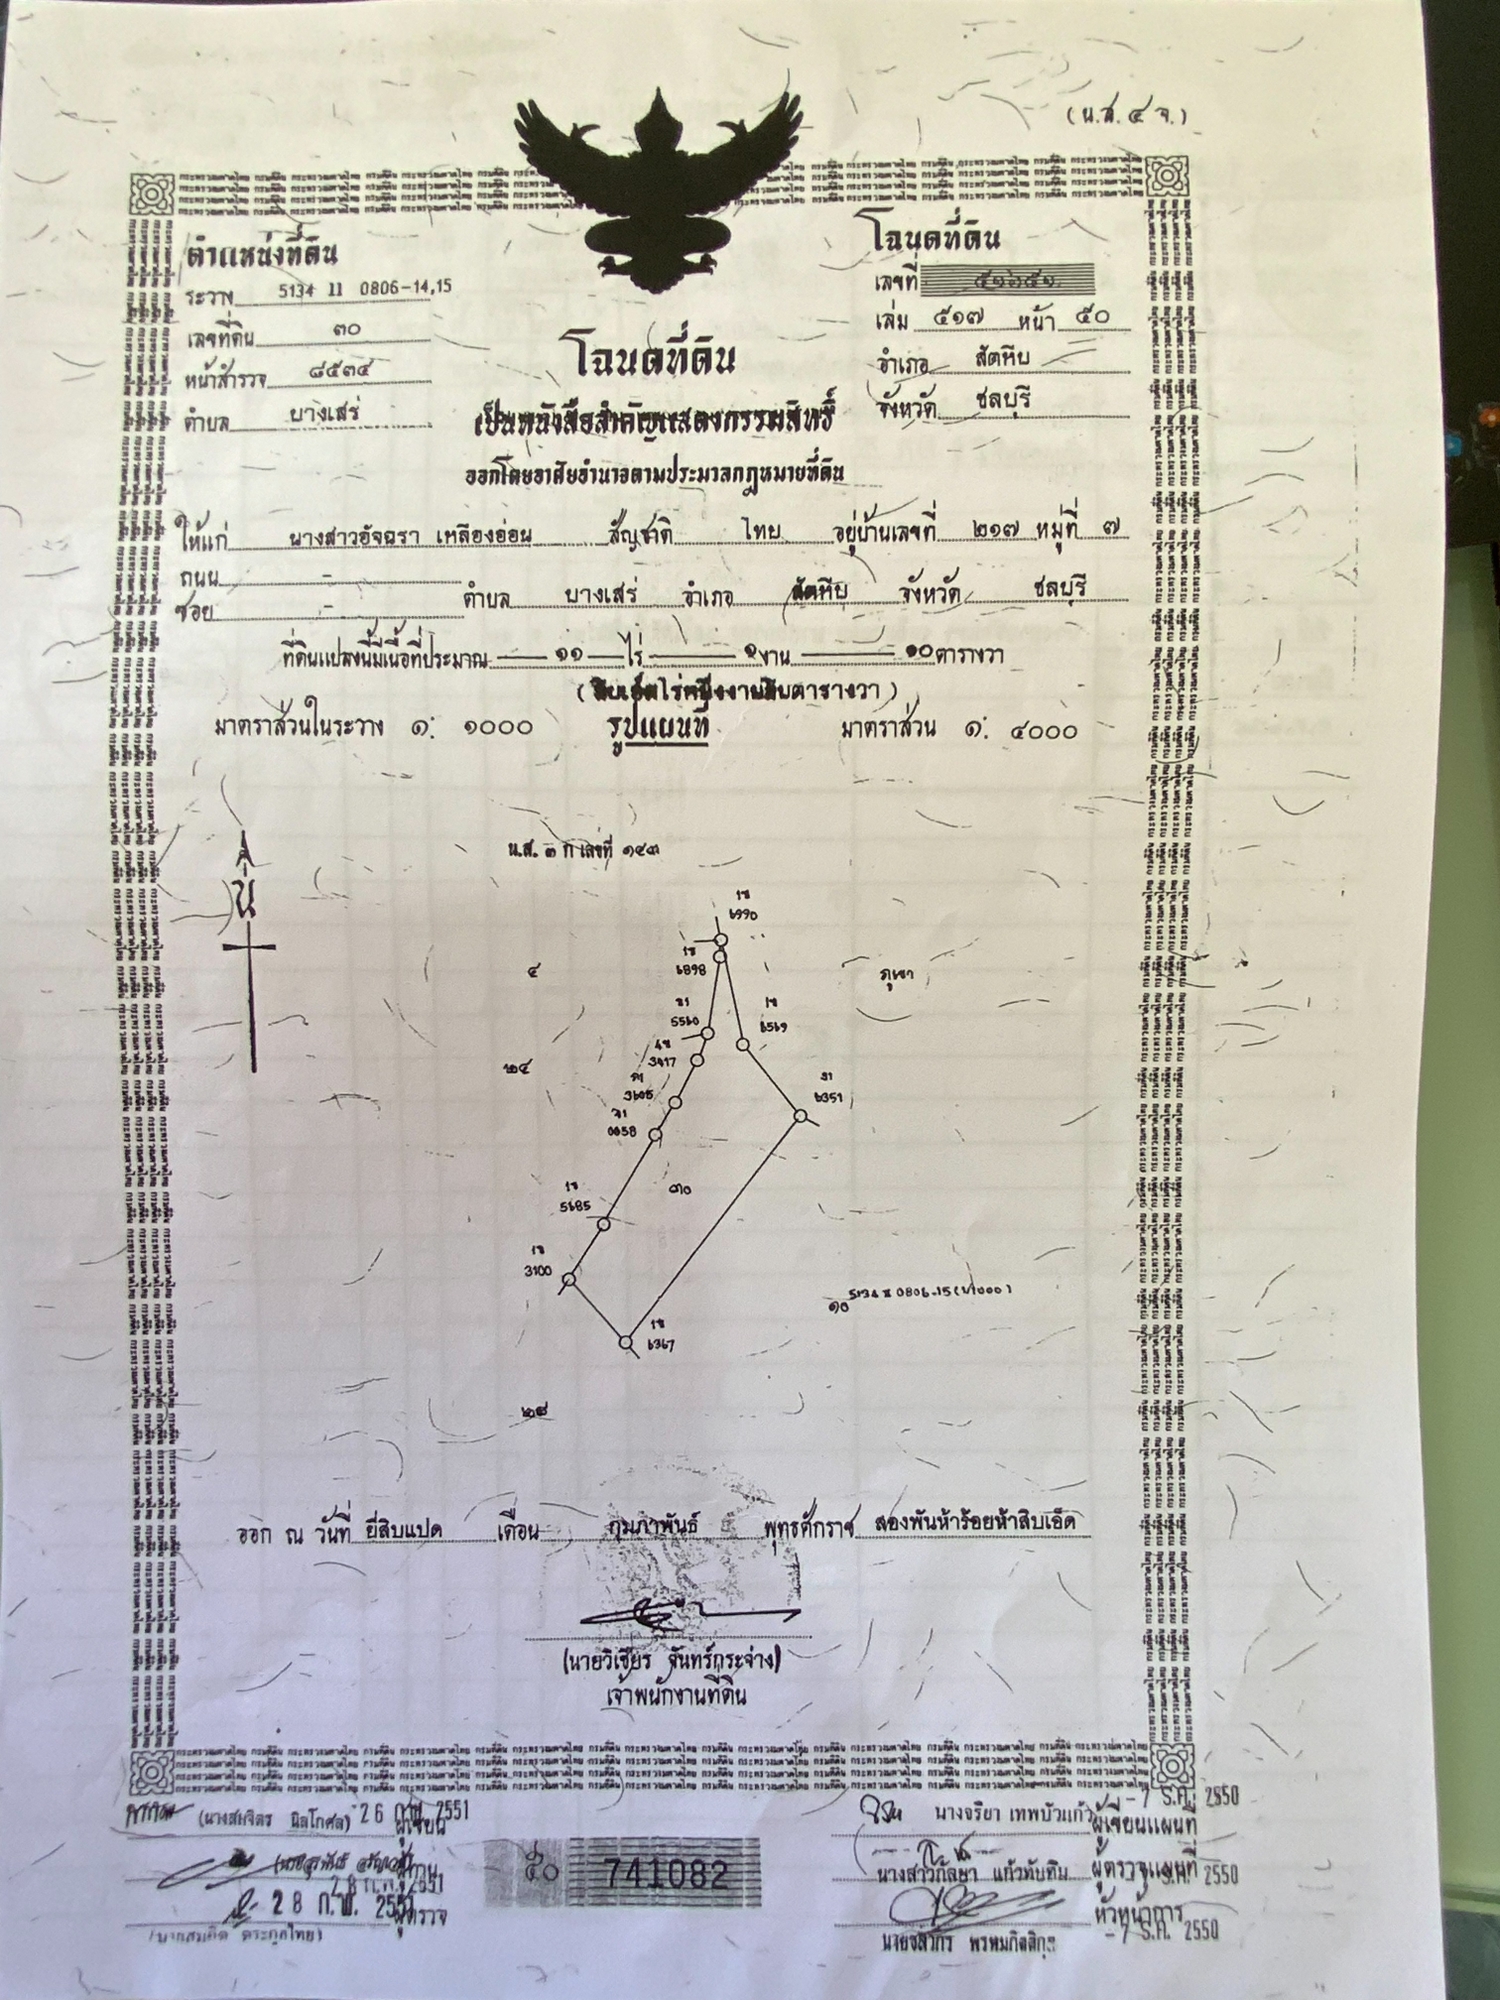 (น.ส.๔ จ.)
ตำแหน่งที่ดิน
ระวาง 5134 II 0806-14,15
เลขที่ดิน ๓๐
หน้าสำรวจ ๘๕๓๔
ตำบล บางเสร่
โฉนดที่ดิน
เลขที่
เล่ม ๕๑๗ หน้า ๕๐
อำเภอ สัตหีบ
จังหวัด ชลบุรี
โฉนดที่ดิน
เป็นหนังสือสำคัญแสดงกรรมสิทธิ์
ออกโดยอาศัยอำนาจตามประมวลกฎหมายที่ดิน
ให้แก่ นางสาวอัจฉรา เหลืองอ่อน สัญชาติ ไทย อยู่บ้านเลขที่ ๒๑๗ หมู่ที่ ๗
ถนน -
ซอย - ตำบล บางเสร่ อำเภอ สัตหีบ จังหวัด ชลบุรี
ที่ดินแปลงนี้มีเนื้อที่ประมาณ ๑๑ ไร่ ๑ งาน ๑๐ ตารางวา
(สิบเอ็ดไร่หนึ่งงานสิบตารางวา)
มาตราส่วนในระวาง ๑: ๑๐๐๐ รูปแผนที่ มาตราส่วน ๑: ๔๐๐๐
น.ส. ๓ ก เลขที่ ๑๔๓
น
6990
6898
๔
ภูเขา
5560
6569
3417
๒๔
6351
5685
๓๐
3100
5134 II 0806-15(1/1000)
๑๐
6367
๒๘
ออก ณ วันที่ ยี่สิบแปด เดือน กุมภาพันธ์ พุทธศักราช สองพันห้าร้อยห้าสิบเอ็ด
(นายวิเชียร จันทร์กระจ่าง)
เจ้าพนักงานที่ดิน
(นางสมจิตร นิลโกศล) 26 ก.พ. 2551 ผู้เขียน
28 ก.พ. 2551 ผู้ทาน
28 ก.พ. 2551 ผู้ตรวจ
(นายสมคิด ตระกูลไทย)
๕๐ 741082
นางจริยา เทพบัวแก้ว ผู้เขียนแผนที่ - 7 ธ.ค. 2550
นางสาวกัลยา แก้วทับทิม ผู้ตรวจแผนที่ ธ.ค. 2550
หัวหน้าการ
- 7 ธ.ค. 2550